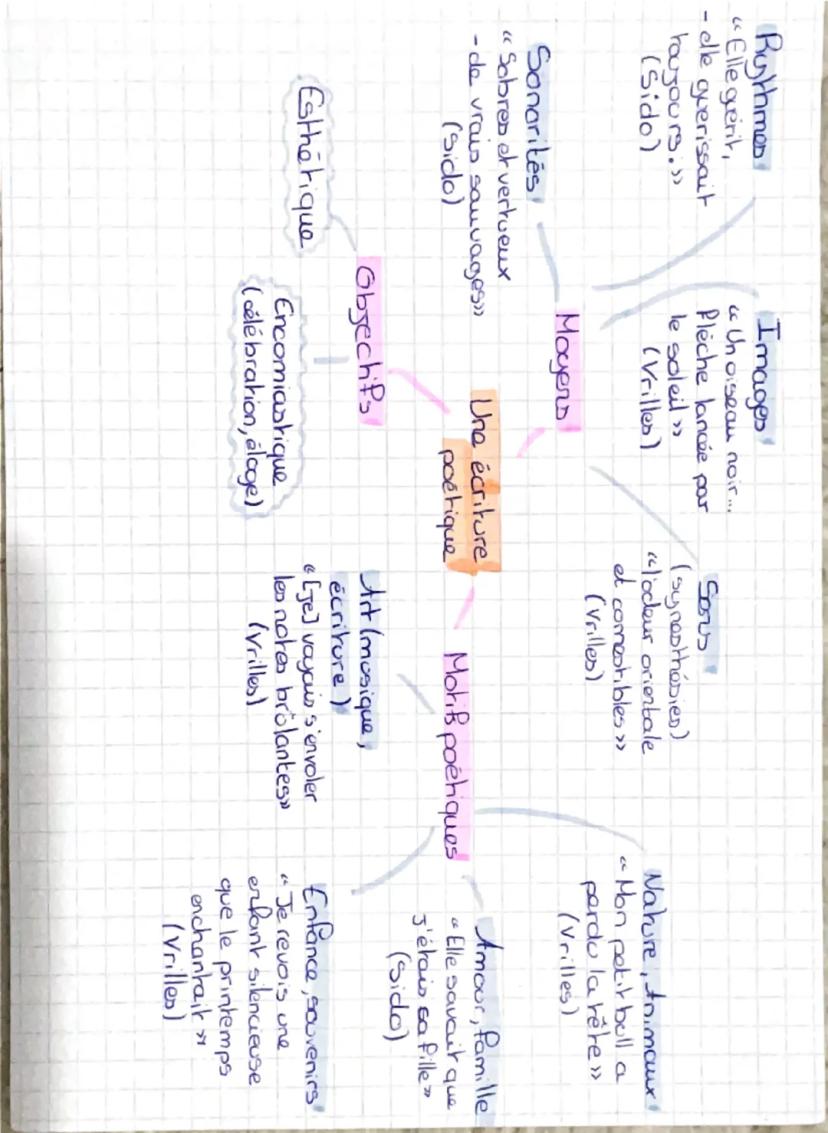 Rythmes
« Elle guérit,
- elle guérissait
toujours. »
(Sido)
Images
« Un oiseau noir...
flèche lancée par
le soleil »
(Vrilles)
Sens
(synesthésies)
« l'odeur orientale
et comestibles »
(Vrilles)
Nature, Animaux
« Mon petit bull a
perdu la tête »
(Vrilles)
Sonorités
« Sobres et vertueux
- de vrais sauvages »
(Sido)
Moyens
Une écriture
poétique
Motifs poétiques
Amour, famille
« Elle savait que
j'étais sa fille »
(Sido)
Objectifs
Esthétique
Encomiastique
(célébration, éloge)
Art (musique,
écriture)
« [je] voyais s'envoler
les notes brûlantes »
(Vrilles)
Enfance, souvenirs
« Je revois une
enfant silencieuse
que le printemps
enchantait »
(Vrilles)